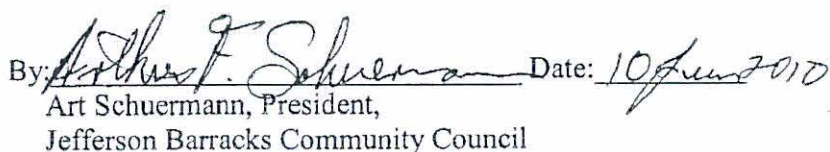 By: Arthur F. Schuermann Date: 10 Jun 2010
Art Schuermann, President,
Jefferson Barracks Community Council